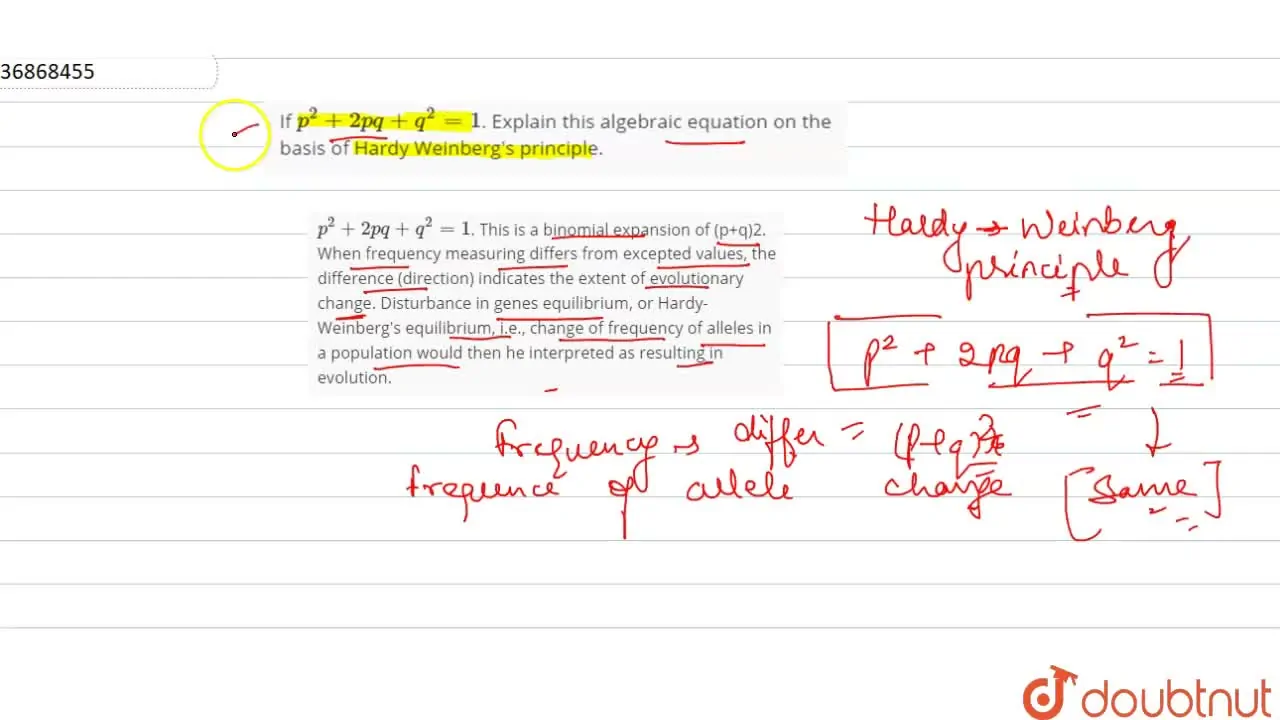 36868455
If p² + 2pq + q² = 1. Explain this algebraic equation on the
basis of Hardy Weinberg's principle.
p² + 2pq + q² = 1. This is a binomial expansion of (p+q)2.
When frequency measuring differs from excepted values, the
difference (direction) indicates the extent of evolutionary
change. Disturbance in genes equilibrium, or Hardy-
Weinberg's equilibrium, i.e., change of frequency of alleles in
a population would then he interpreted as resulting in
evolution.
Hardy → Weinberg
principle
p² + 2pq + q² = 1
frequency → differ = (p+q)²
frequence of allele change [Same]
doubtnut